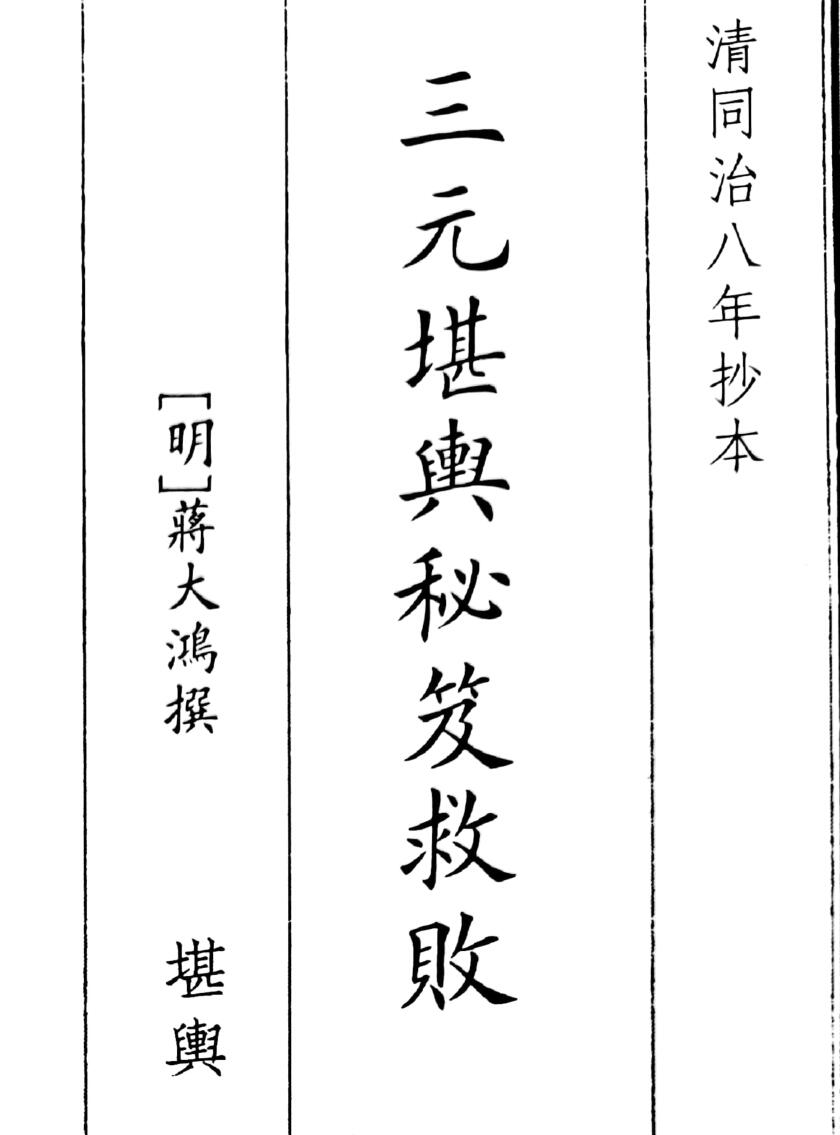 清同治八年抄本
三元堪輿秘笈救敗
[明]蔣大鴻撰
堪輿